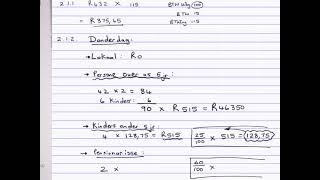 2.1.1 R432 × 115
BTW Uitg 100
BTW 15
= R375,65
BTW Ing 115
2.1.2. Donderdag:
→ Lokaal: R0
→ Persone ouer as 5 jr:
42 × 2 = 84
6 kinders: 6
90 × R515 = R46350
→ Kinders onder 5 jr
4 × 128,75 = R515
25/100 × 515 = 128,75
→ Pensionarisse:
2 ×
60/100 ×